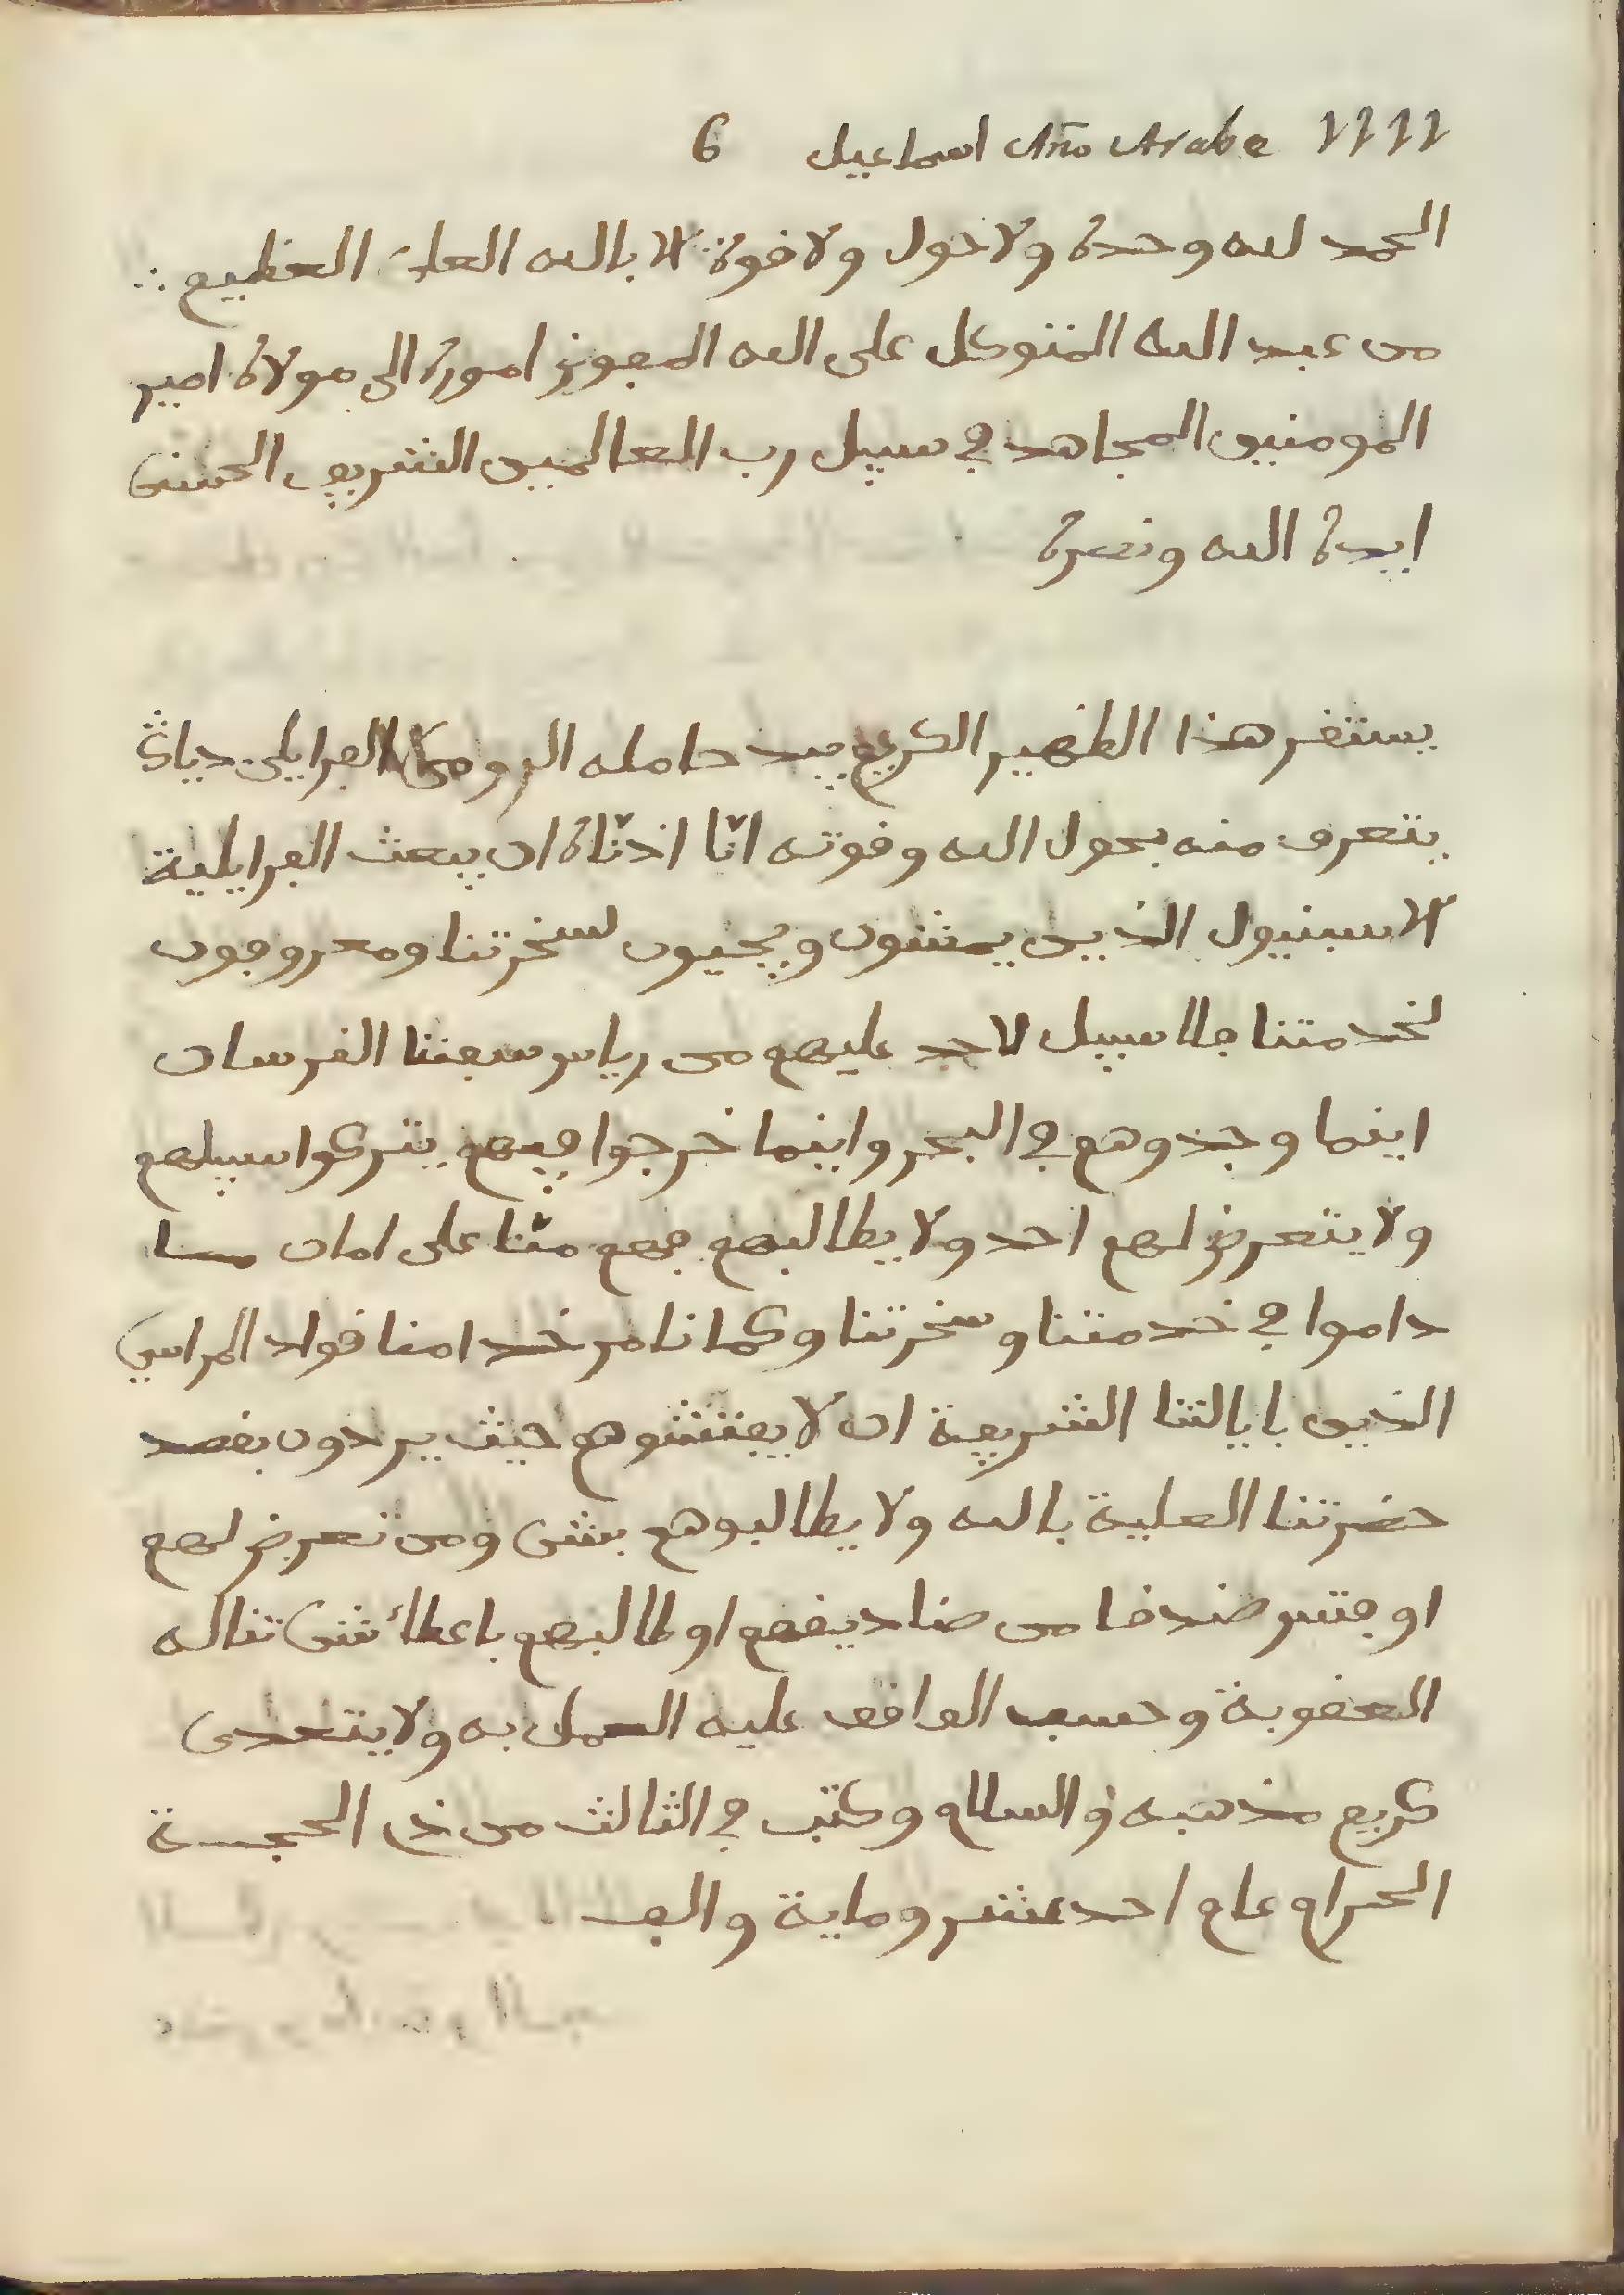 6 اسماعيل Año Arabe 1111
الحمد لله وحده ولا حول ولا قوة الا بالله العلي العظيم ∴
من عبد الله المتوكل على الله المفوض اموره الى مولاه امير
المومنين المجاهد في سبيل رب العالمين الشريف الحسني
ايده الله ونصره
يستقر هذا الظهير الكريم بيد حامله الرومي الفرايلي دياڭ
يتعرف منه بحول الله وقوته انّا اذنّاه ان يبعث الفرايلية
الاسبنيول الذين يمشون ويجيون لسخرتنا ومعروفون
لخدمتنا فلا سبيل لاحد عليهم من رياس سفننا القرسان
اينما وجدوهم في البحر واينما خرجوا فيهم يتركوا سبيلهم
ولا يتعرض لهم احد ولا يطالبهم فهم منّا على امان ما
داموا في خدمتنا وسخرتنا وكما نامر خدامنا قواد المراسي
الذين بايالتنا الشريفة ان لا يفتشوهم حيث يردون بقصد
حضرتنا العلية بالله ولا يطالبوهم بشى ومن تعرض لهم
او فتش صندقا من صناديقهم او طالبهم باعطاء شى تناله
العقوبة وحسب الواقف عليه العمل به ولا يتعدى
كريم مذهبه والسلام وكتب في الثالث من ذي الحجـة
الحرام عام احد عشر وماية والف